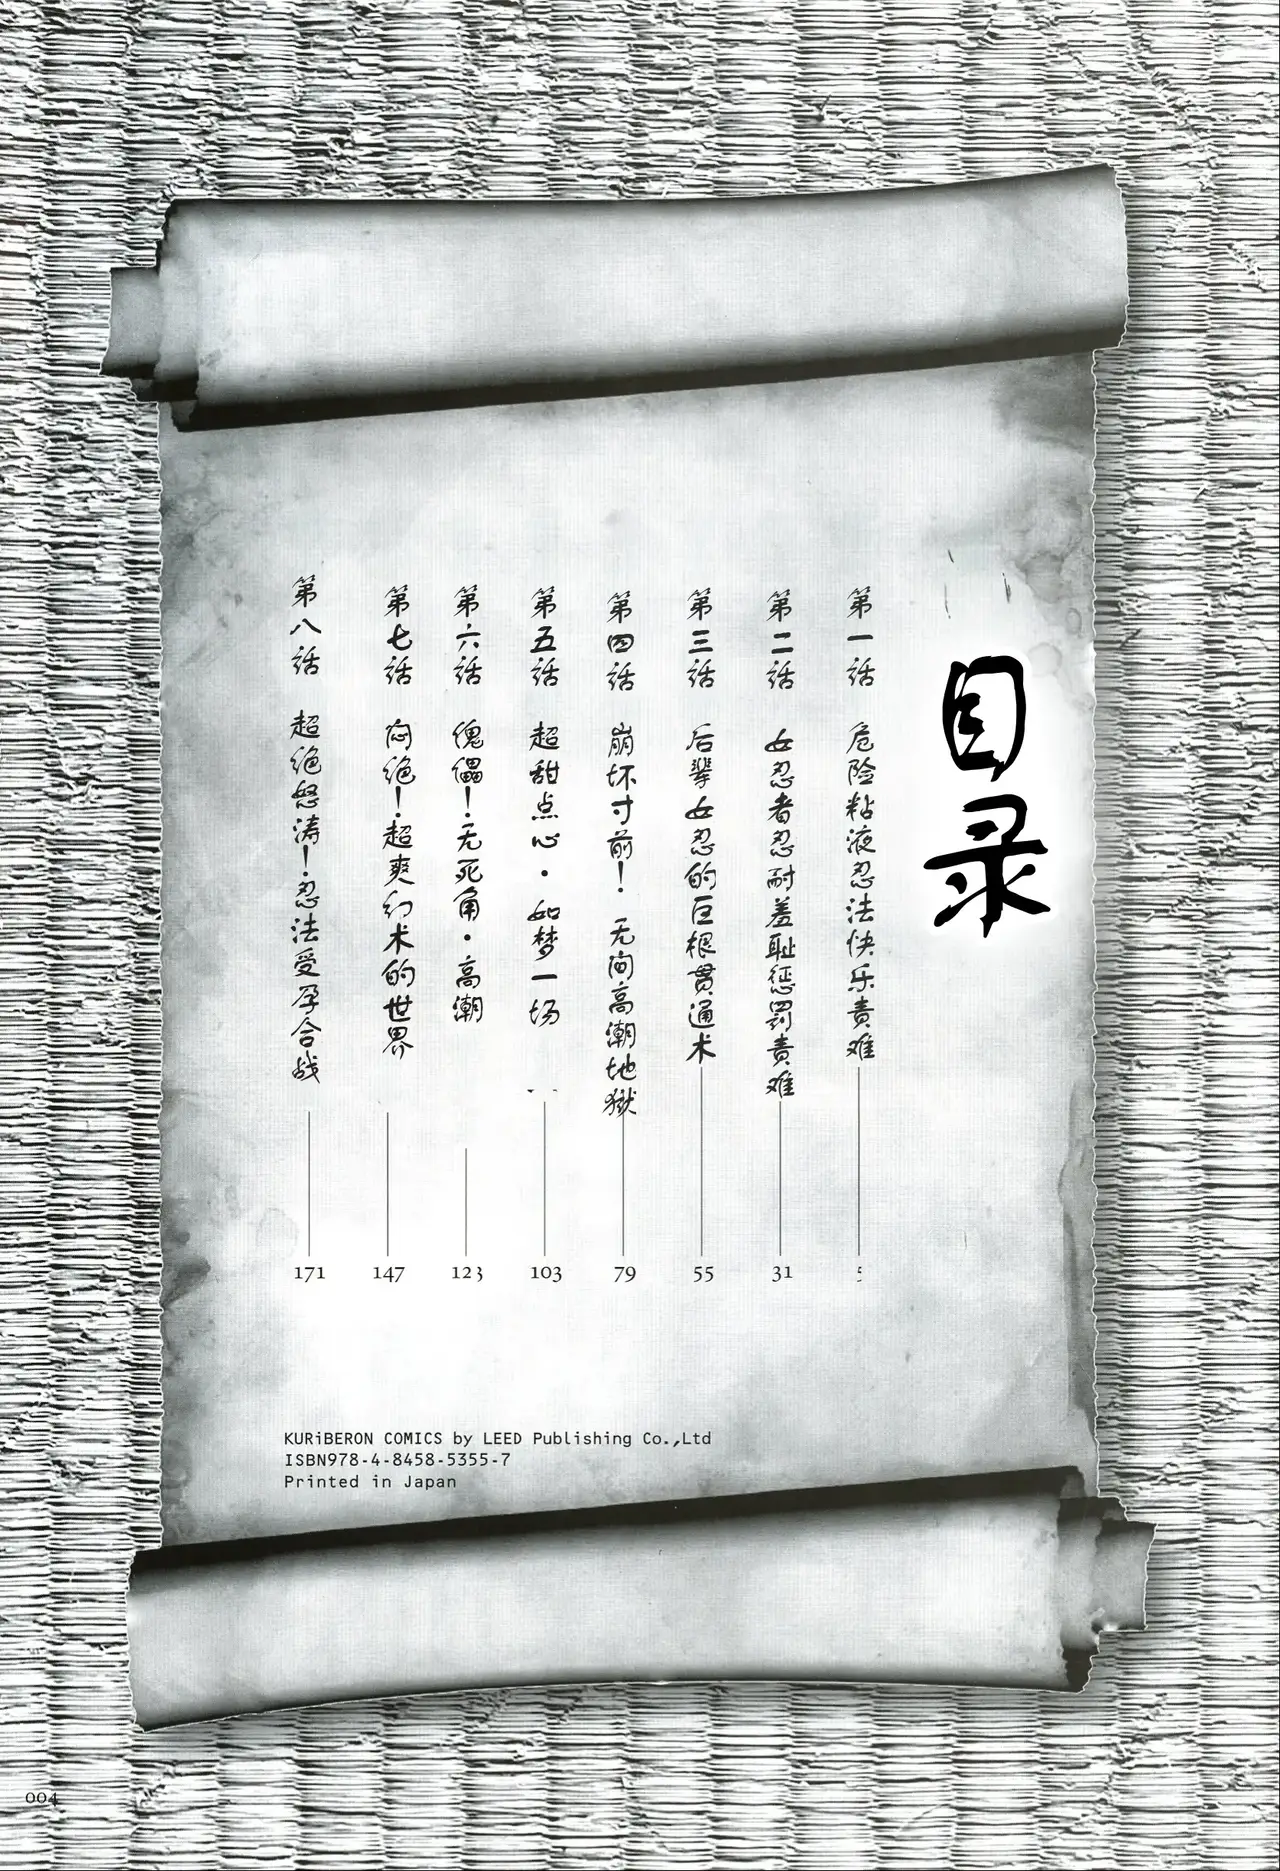 目录
第一话 危险粘液忍法快乐责难 5
第二话 女忍者忍耐羞耻惩罚责难 31
第三话 后辈女忍的巨根贯通术 55
第四话 崩坏寸前！无间高潮地狱 79
第五话 超甜点心・如梦一场 103
第六话 傀儡！无死角・高潮 123
第七话 闷绝！超爽幻术的世界 147
第八话 超绝怒涛！忍法受孕合战 171
KURiBERON COMICS by LEED Publishing Co.,Ltd
ISBN978-4-8458-5355-7
Printed in Japan
004